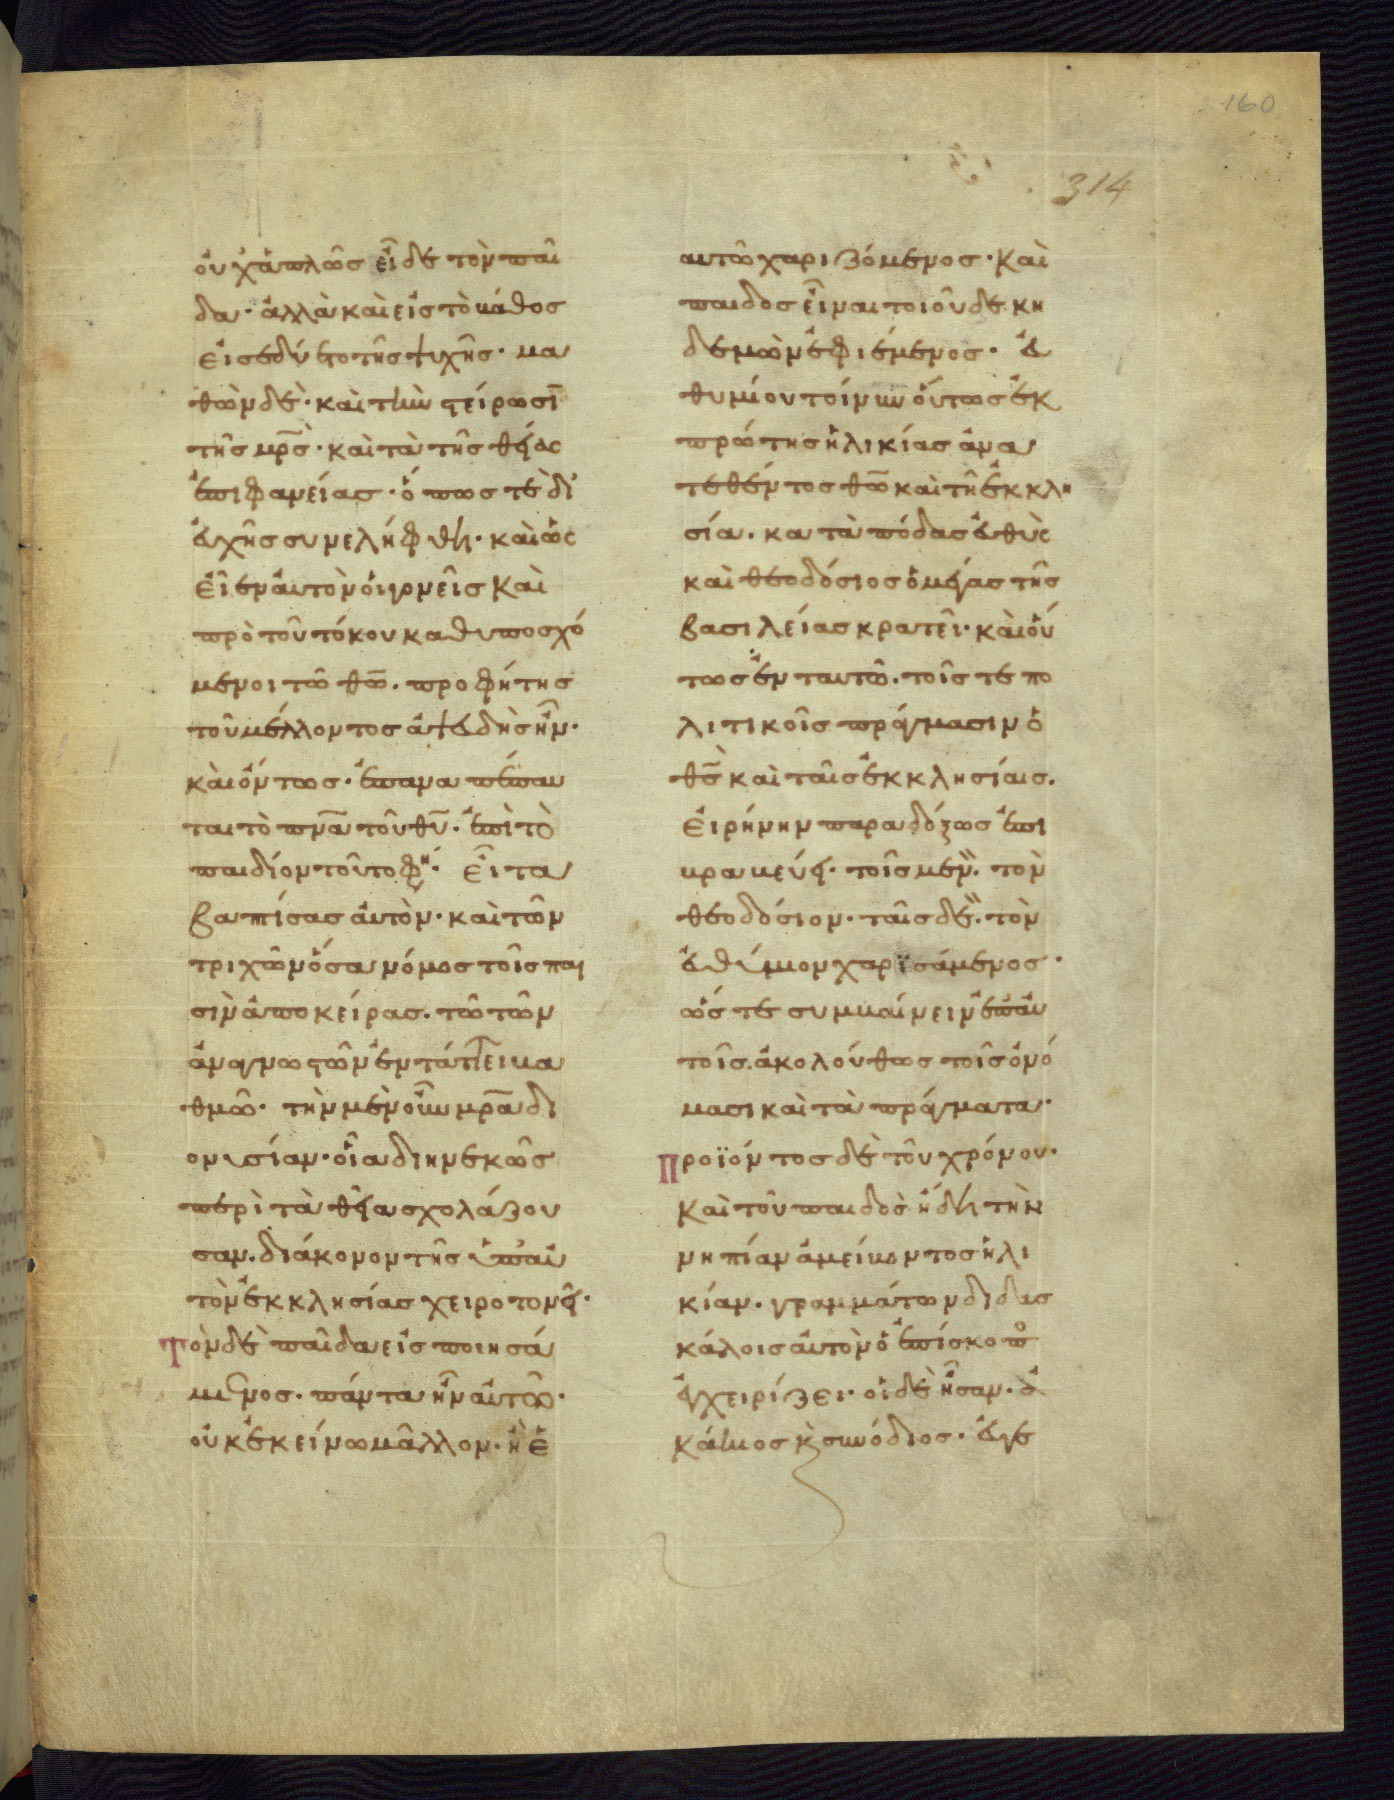 οὐχ ἁπλῶς εἶδε τὸν παῖ
δα· ἀλλὰ καὶ εἰς τὸ βάθος
εἰσεδύετο τῆς ψυχῆς· μα
θὼν δὲ· καὶ τὴν στείρωσῑ
τῆς μρ̅ς· καὶ τὰ τῆς θείας
ἐπιφανείας· ὅπως τὲ δι’
εὐχῆς συνελήφθη· καὶ ὡς
εἶεν αὐτὸν οἱ γονεῖς καὶ
πρὸ τοῦ τόκου καθυποσχό
μενοι τῶ θω̅. προφήτης
τοῦ μέλλοντος ἀψευδὴς ἦν·
καὶ ὄντως· ἐπαναπέπαυ
ται τὸ πνα̅ τοῦ θυ̅· ἐπὶ τὸ
παιδίον τοῦτο φη· εἶτα
βαπτίσας αὐτὸν· καὶ τῶν
τριχῶν ὅσα νόμος τοῖς παι
σὶν ἀποκείρας. τῶ τῶν
ἀναγνωστῶν ἐντάττει βα
θμῶ· τὴν μὲν οὖν μρα̅ δι
ονυσίαν· οἷα διηνεκῶς
περὶ τὰ θεῖα σχολάζου
σαν. διάκονον τῆς ὑπ’ αὐ
τὸν ἐκκλησίας χειροτονεῖ·
Τὸν δὲ παῖδα εἰσποιησά
μενος. πάντα ἦν αὐτῶ·
οὐκ ἐκείνω μᾶλλον· ἢ ἑ
160
314
αυτῶ χαριζόμενος· καὶ
παιδος εἶναι τοιοῦδε κη
δεμὼν ἐφιέμενος· εὐ
θυμίου τοίνυν οὕτως ἐκ
πρώτης ἡλικίας ἀνα
τεθέντος θω̅ καὶ τῆ ἐκκλη
σία. κατὰ πόδας εὐθὺς
καὶ θεοδόσιος ὁ μέγας τῆς
βασιλείας κρατεῖ· καὶ οὕ
τως ἐν ταυτῶ. τοῖς τε πο
λιτικοῖς πράγμασιν ὁ
θς̅ καὶ ταῖς ἐκκλησίαις.
εἰρήνην παραδόξως ἐπι
βραβεύει· τοῖς μὲν. τὸν
θεοδόσιον· ταῖς δὲ. τὸν
εὐθύμιον χαρϊσάμενος·
ὥς τε συμβαίνειν ἐπ’ αὐ
τοῖς. ἀκολούθως τοῖς ὀνό
μασι καὶ τὰ πράγματα·
Προϊόντος δὲ τοῦ χρόνου·
καὶ τοῦ παιδὸς ἤδη τὴν
νηπίαν ἀμείβοντος ἡλι
κίαν. γραμμάτων διδας
κάλοις αὐτὸν ὁ ἐπίσκοπο
ἐγχειρίζει· οἱ δὲ ἦσαν. ἀ
κάκιος κ̀ συνόδιος· εὐγε